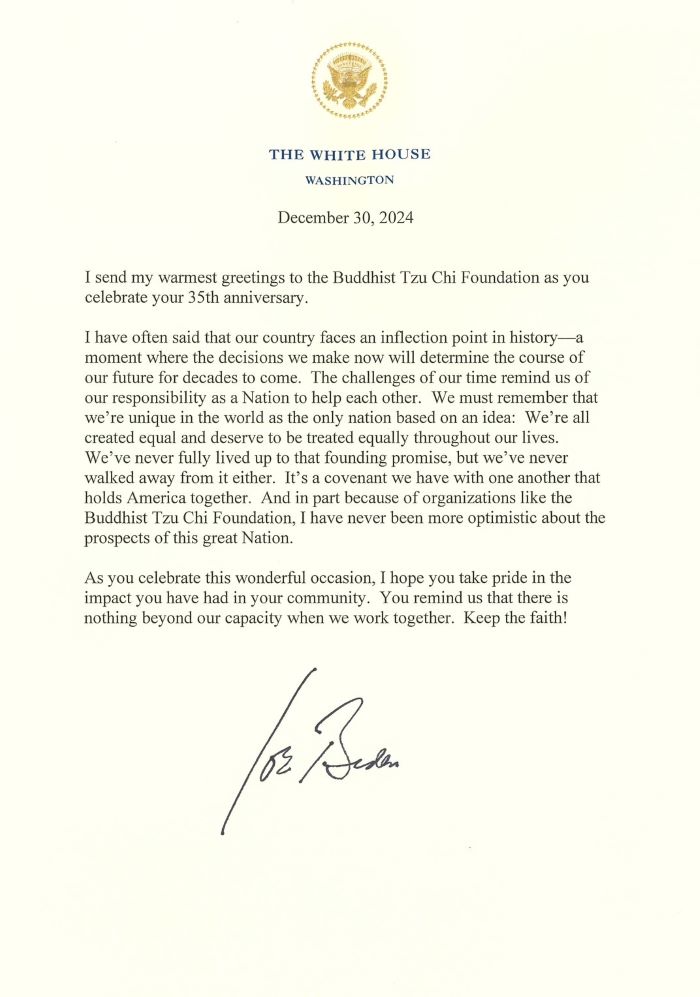 THE WHITE HOUSE
WASHINGTON
December 30, 2024
I send my warmest greetings to the Buddhist Tzu Chi Foundation as you
celebrate your 35th anniversary.
I have often said that our country faces an inflection point in history—a
moment where the decisions we make now will determine the course of
our future for decades to come.  The challenges of our time remind us of
our responsibility as a Nation to help each other.  We must remember that
we’re unique in the world as the only nation based on an idea:  We’re all
created equal and deserve to be treated equally throughout our lives.
We’ve never fully lived up to that founding promise, but we’ve never
walked away from it either.  It’s a covenant we have with one another that
holds America together.  And in part because of organizations like the
Buddhist Tzu Chi Foundation, I have never been more optimistic about the
prospects of this great Nation.
As you celebrate this wonderful occasion, I hope you take pride in the
impact you have had in your community.  You remind us that there is
nothing beyond our capacity when we work together.  Keep the faith!
Joe Biden